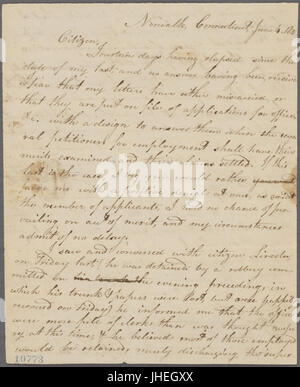 Norwalk, Connecticut, June 4, 180
Citizen,
Fourteen days having elapsed since the
date of my last, and no answer having been received
I fear that my letters have either miscarried, or
that they are put on file of applications for offices
&c. with a design to answer them when the seve
ral petitions for employment shall have their
merits examined, and their claims settled. If this
last is the case, I would rather
the number of applicants, I see no chance of pre
vailing on acct of merit, and my circumstances
admit of no delay.
I saw and conversed with citizen Lincoln
on Friday last; he was detained by a robbery com
mitted on the evening preceding, in
which his trunk & papers were lost, but
recovered on Friday; he informed me that the offices
were more full of clerks than was thought necess
ary at this time, & he believed most of those employed
would be retained, merely discharging the super
10773
alamy
www.alamy.com
JHEGXX